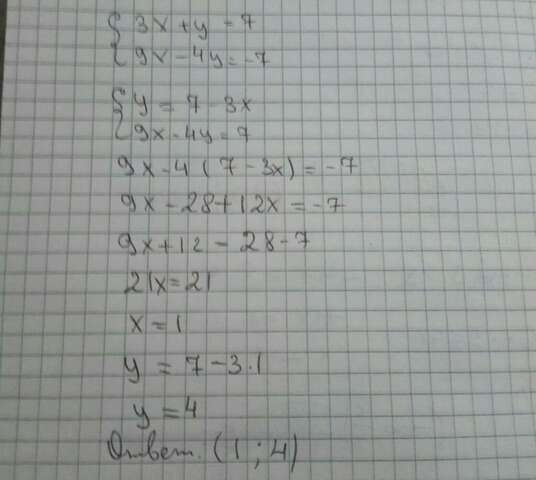 { 3x + y = 7
{ 9x - 4y = -7
{ y = 7 - 3x
{ 9x - 4y = 7
9x - 4 (7 - 3x) = -7
9x - 28 + 12x = -7
9x + 12 - 28 - 7
21x = 21
x = 1
y = 7 - 3 · 1
y = 4
Ответ. (1 ; 4)